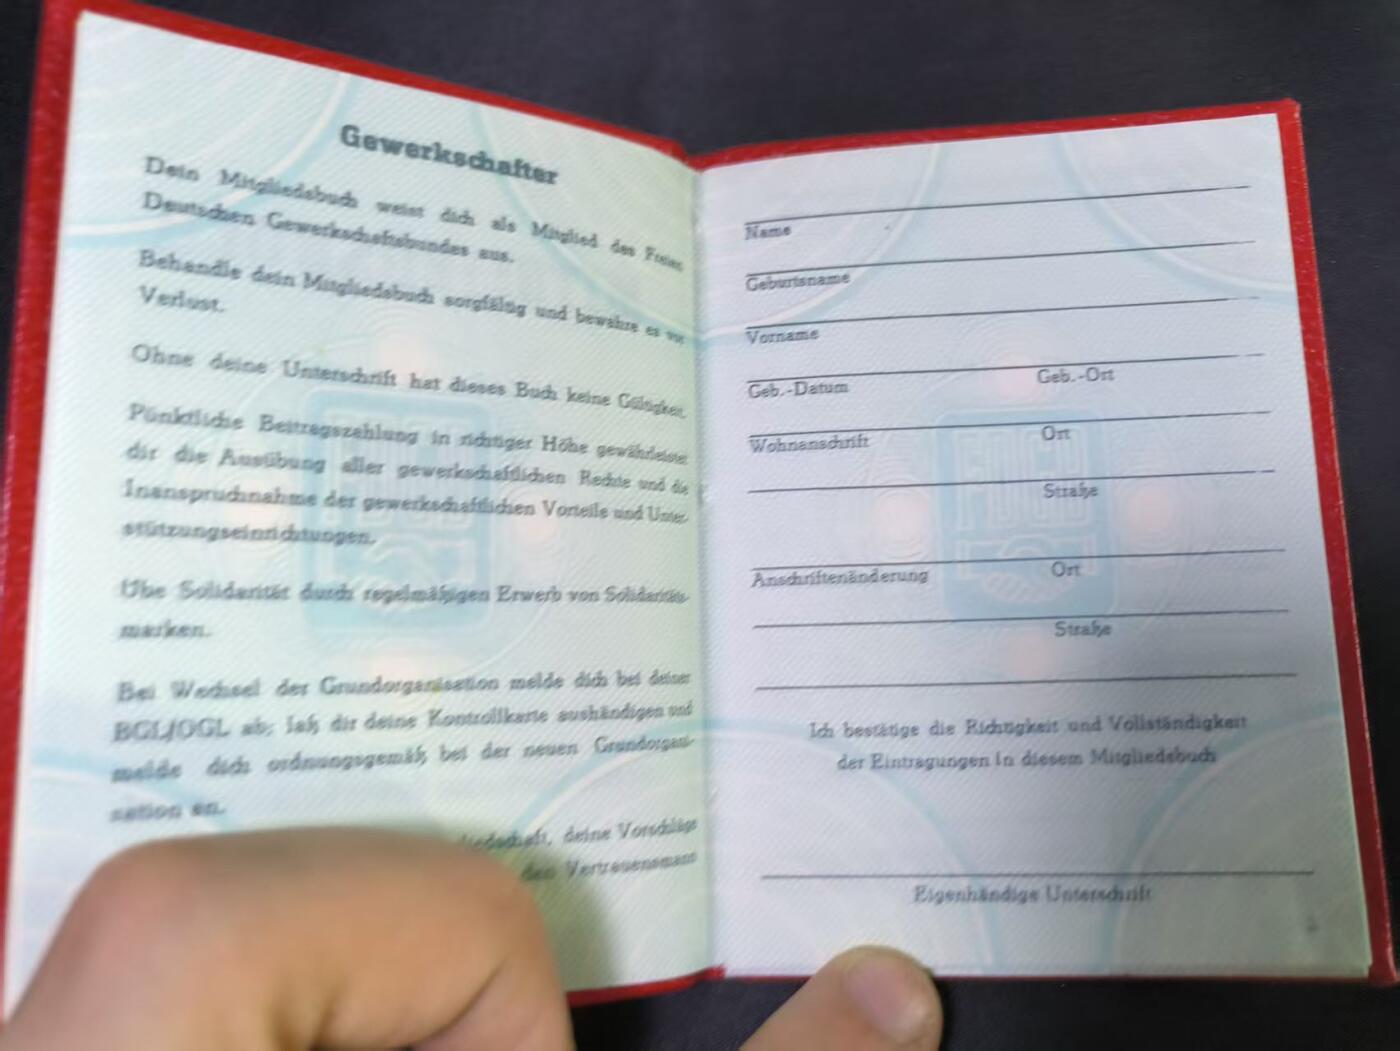 Gewerkschafter
Dein Mitgliedsbuch weist dich als Mitglied des Freien
Deutschen Gewerkschaftsbundes aus.
Behandle dein Mitgliedsbuch sorgfältig und bewahre es vor
Verlust.
Ohne deine Unterschrift hat dieses Buch keine Gültigkeit.
Pünktliche Beitragszahlung in richtiger Höhe gewährleistet
dir die Ausübung aller gewerkschaftlichen Rechte und die
Inanspruchnahme der gewerkschaftlichen Vorteile und Unter-
stützungseinrichtungen.
Übe Solidarität durch regelmäßigen Erwerb von Solidaritäts-
marken.
Bei Wechsel der Grundorganisation melde dich bei deiner
BGL/OGL ab; laß dir deine Kontrollkarte aushändigen und
melde dich ordnungsgemäß bei der neuen Grundorgani-
sation an.
liedschaft, deine Vorschläge
den Vertrauensmann
Name
Geburtsname
Vorname
Geb.-Datum Geb.-Ort
Wohnanschrift Ort
Straße
Anschriftenänderung Ort
Straße
FDGB
Ich bestätige die Richtigkeit und Vollständigkeit
der Eintragungen in diesem Mitgliedsbuch
Eigenhändige Unterschrift